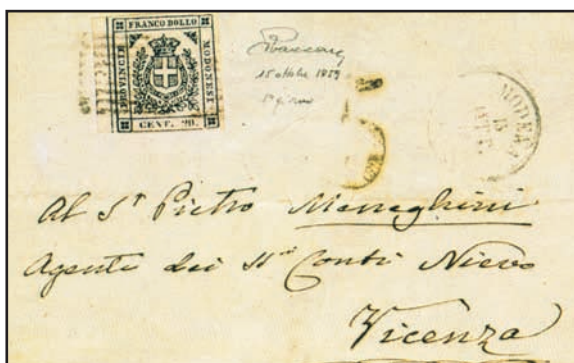 FRANCO BOLLO
PROVINCIE
MODONESI
CENT. 20.
15 ottobre 1859
1° giorno
MODENA
15
OTT.E
Al S.r Pietro Meneghini
Agente dei SS.ri Conti Nievo
Vicenza